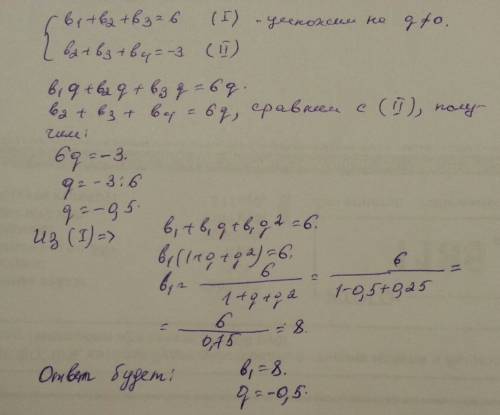 { b₁ + b₂ + b₃ = 6 (I) - умножим на q≠0.
b₂ + b₃ + b₄ = -3 (II)
b₁q + b₂q + b₃q = 6q.
b₂ + b₃ + b₄ = 6q, сравним с (II), полу-
чим:
6q = -3.
q = -3:6
q = -0,5.
Из (I) => b₁ + b₁q + b₁q² = 6.
b₁(1+q+q²) = 6.
b₁ = 6/(1+q+q²) = 6/(1-0,5+0,25) =
= 6/0,75 = 8.
Ответ будет: b₁ = 8.
q = -0,5.